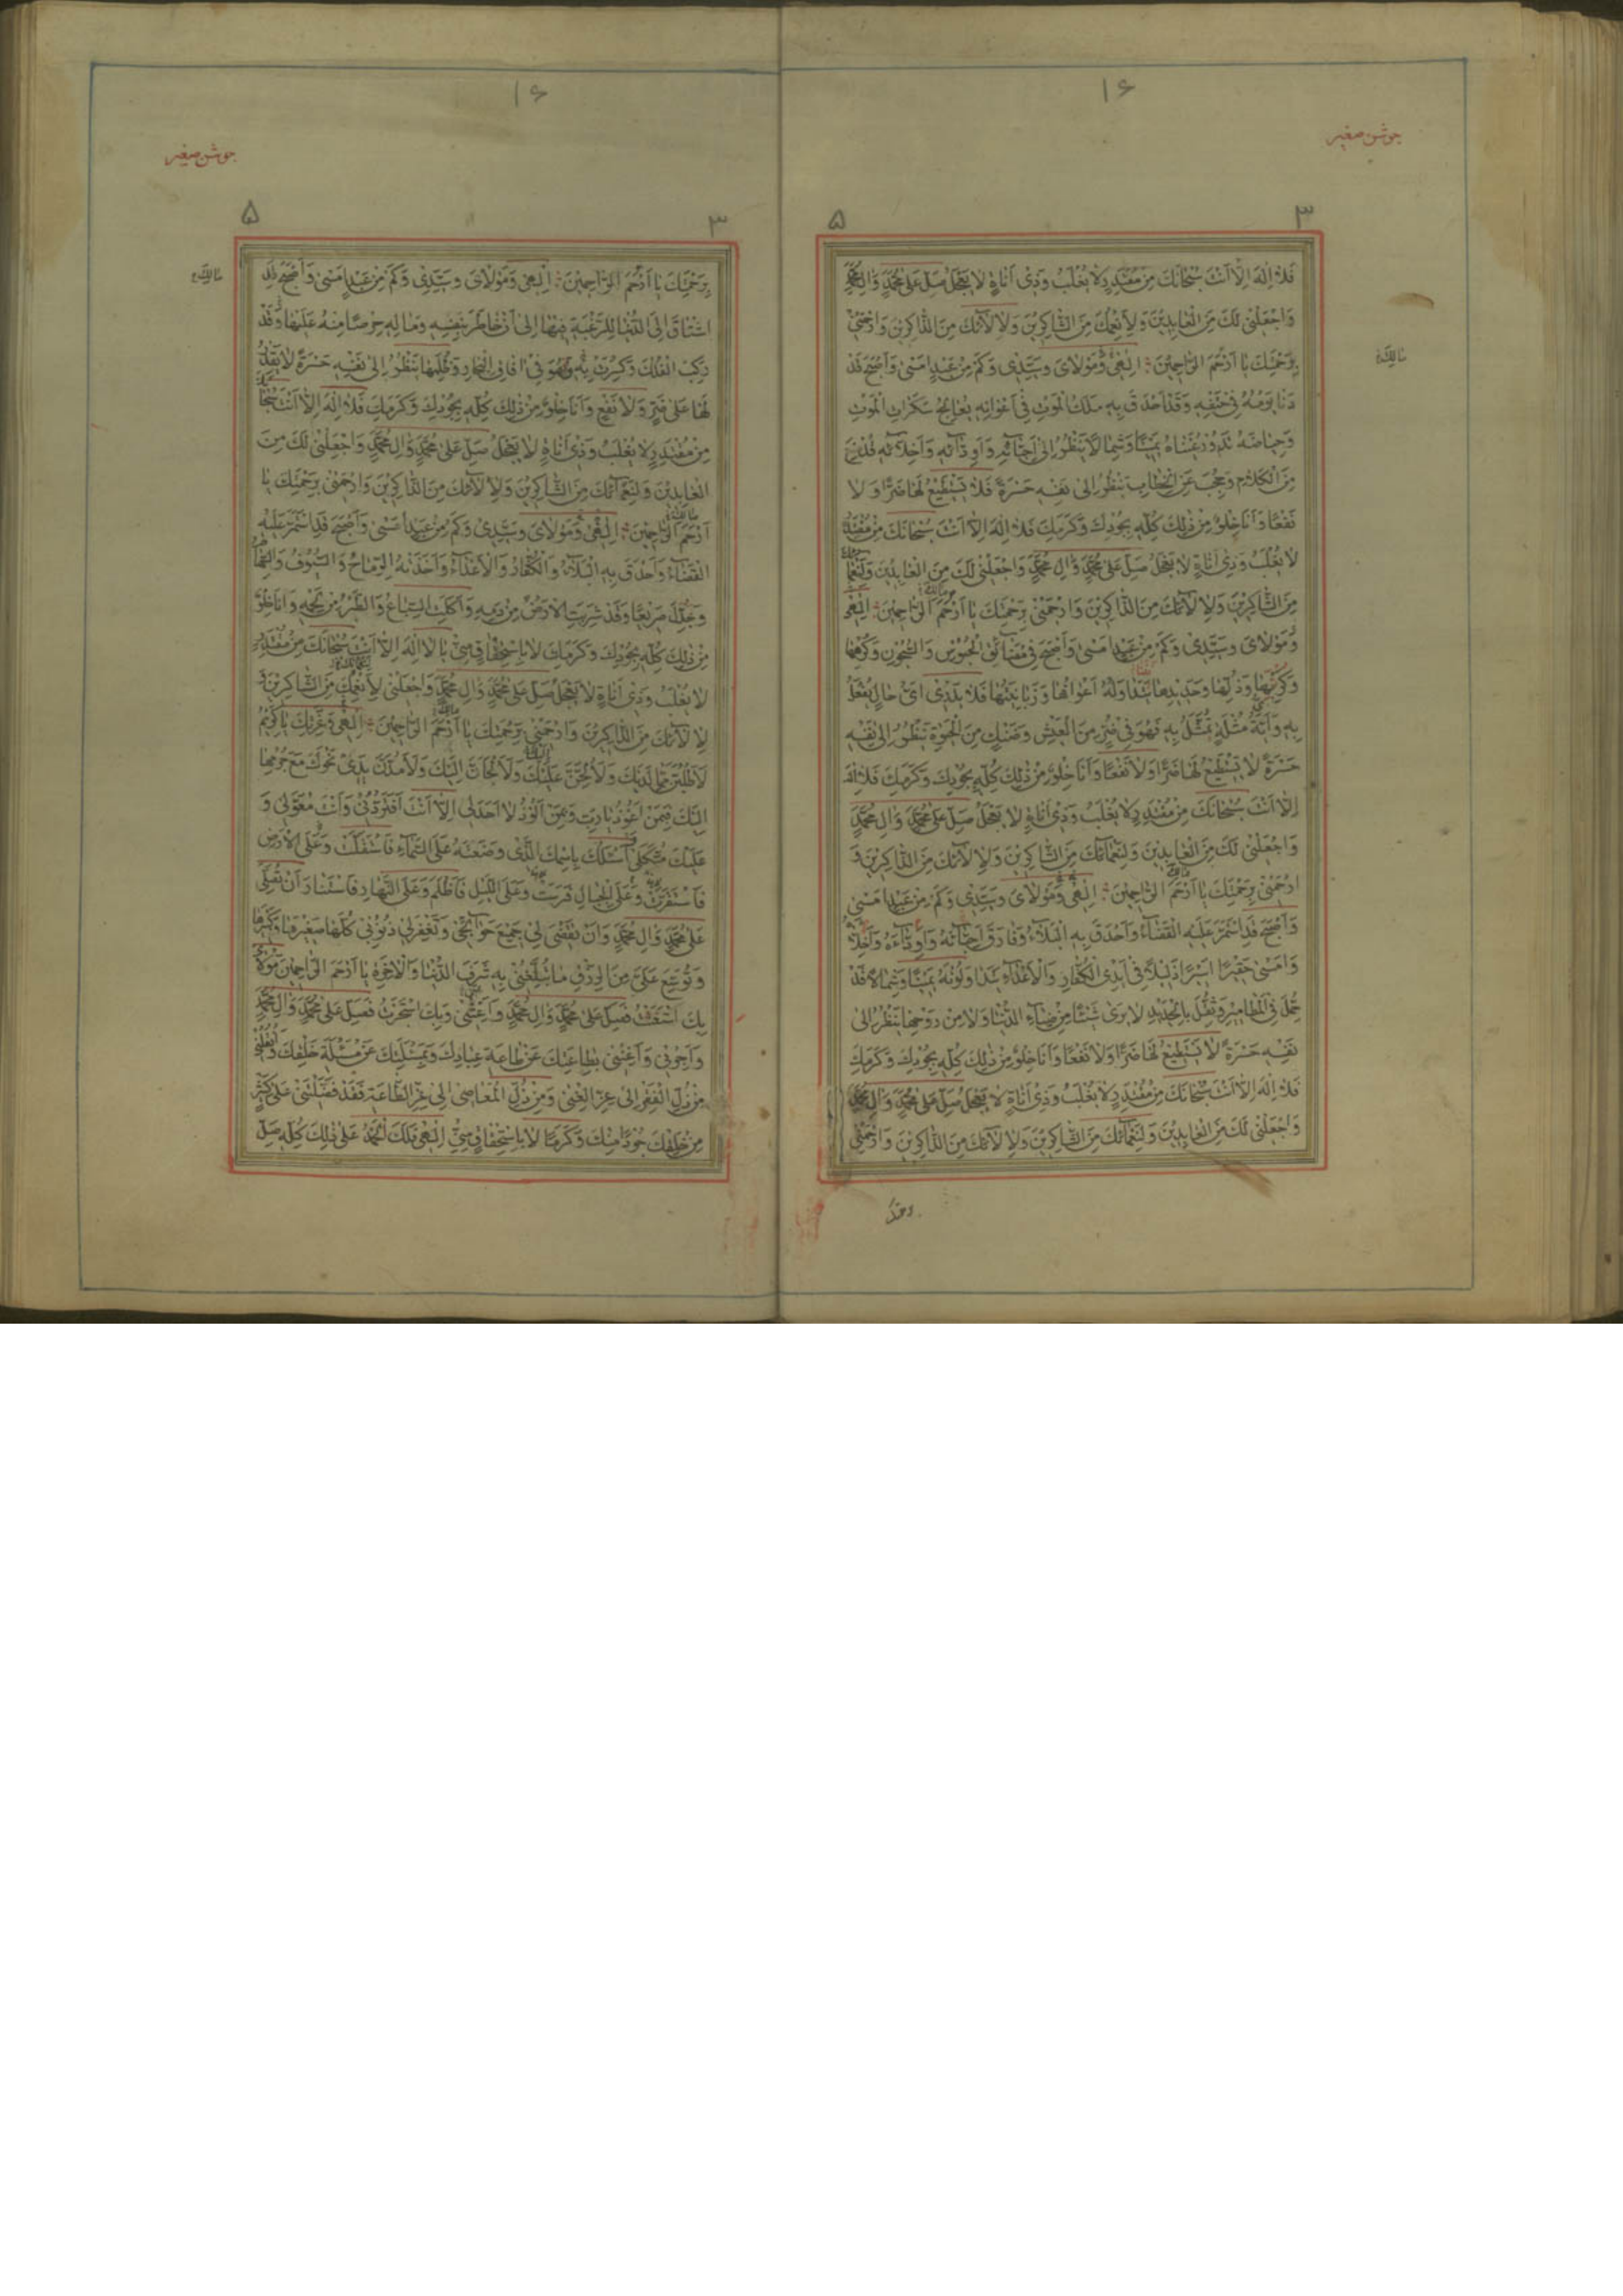 ۱۶
جوشن صغیر
۳
۵
فَلا اِلهَ اِلّا اَنْتَ سُبْحانَكَ مِنْ مُقْتَدِرٍ لا يُغْلَبُ وَذي اَناةٍ لا يَعْجَلُ صَلِّ عَلى مُحَمَّدٍ وَالِ مُحَمَّدٍ
وَاجْعَلْني لَكَ مِنَ الْعابِدينَ وَلِاَنْعُمِكَ مِنَ الشّاكِرينَ وَلِالائِكَ مِنَ الذّاكِرينَ وَارْحَمْني
بِرَحْمَتِكَ يا اَرْحَمَ الرّاحِمينَ اِلهي وَمَوْلايَ وَسَيِّدي وَكَمْ مِنْ عَبْدٍ اَمْسى وَاَصْبَحَ قَدْ
دَنا يَوْمُهُ في حَتْفِهِ وَقَدْ اَحْدَقَ بِهِ مَلَكُ الْمَوْتِ في اَعْوانِهِ يُعالِجُ سَكَراتِ الْمَوْتِ
وَحِياضَهُ تَدُورُ عَيْناهُ يَمينًا وَشِمالًا يَنْظُرُ اِلى اَحِبّائِهِ وَاَوِدّائِهِ وَاَخِلّائِهِ قَدْ مُنِعَ
مِنَ الْكَلامِ وَحُجِبَ عَنِ الْخِطابِ يَنْظُرُ اِلى نَفْسِهِ حَسْرَةً فَلا يَسْتَطيعُ لَها ضَرًّا وَلا
نَفْعًا وَاَنَا خِلْوٌ مِنْ ذلِكَ كُلِّهِ بِجُودِكَ وَكَرَمِكَ فَلا اِلهَ اِلّا اَنْتَ سُبْحانَكَ مِنْ مُقْتَدِرٍ
لا يُغْلَبُ وَذي اَناةٍ لا يَعْجَلُ صَلِّ عَلى مُحَمَّدٍ وَالِ مُحَمَّدٍ وَاجْعَلْني لَكَ مِنَ الْعابِدينَ وَلِنَعْمائِكَ
مِنَ الشّاكِرينَ وَلِالائِكَ مِنَ الذّاكِرينَ وَارْحَمْني بِرَحْمَتِكَ يا اَرْحَمَ الرّاحِمينَ اِلهي
وَمَوْلايَ وَسَيِّدي وَكَمْ مِنْ عَبْدٍ اَمْسى وَاَصْبَحَ في مَضائِقِ الْحُبُوسِ وَالسُّجُونِ وَكُرَبِها
وَذُلِّها وَحَديدِها اَعْوانُها وَزَبانِيَتُها فَلا يَدْري اَيُّ حالٍ يُفْعَلُ
بِهِ وَاَيَّةُ مُثْلَةٍ يُمَثَّلُ بِهِ فَهُوَ في ضُرٍّ مِنَ الْعَيْشِ وَضَنْكٍ مِنَ الْحَيوةِ يَنْظُرُ اِلى نَفْسِهِ
حَسْرَةً لا يَسْتَطيعُ لَها ضَرًّا وَلا نَفْعًا وَاَنَا خِلْوٌ مِنْ ذلِكَ كُلِّهِ بِجُودِكَ وَكَرَمِكَ فَلا اِلهَ
اِلّا اَنْتَ سُبْحانَكَ مِنْ مُقْتَدِرٍ لا يُغْلَبُ وَذي اَناةٍ لا يَعْجَلُ صَلِّ عَلى مُحَمَّدٍ وَالِ مُحَمَّدٍ
وَاجْعَلْني لَكَ مِنَ الْعابِدينَ وَلِنَعْمائِكَ مِنَ الشّاكِرينَ وَلِالائِكَ مِنَ الذّاكِرينَ وَ
ارْحَمْني بِرَحْمَتِكَ يا اَرْحَمَ الرّاحِمينَ اِلهي وَمَوْلايَ وَسَيِّدي وَكَمْ مِنْ عَبْدٍ اَمْسى
وَاَصْبَحَ قَدِ اسْتَمَرَّ عَلَيْهِ الْقَضاءُ وَاَحْدَقَ بِهِ الْبَلاءُ وَفارَقَ اَحِبّائَهُ وَاَوِدّاءَهُ وَاَخِلّاءَهُ
وَاَمْسى حَقيرًا اَسيرًا ذَليلًا في اَيْدِي الْكُفّارِ وَالْاَعْداءِ يَتَداوَلُونَهُ يَمينًا وَشِمالًا قَدْ
حُمِلَ فِي الْمَطاميرِ وَثُقِّلَ بِالْحَديدِ لا يَرى شَيْئًا مِنْ ضِياءِ الدُّنْيا وَلا مِنْ رَوْحِها يَنْظُرُ اِلى
نَفْسِهِ حَسْرَةً لا يَسْتَطيعُ لَها ضَرًّا وَلا نَفْعًا وَاَنَا خِلْوٌ مِنْ ذلِكَ كُلِّهِ بِجُودِكَ وَكَرَمِكَ
فَلا اِلهَ اِلّا اَنْتَ سُبْحانَكَ مِنْ مُقْتَدِرٍ لا يُغْلَبُ وَذي اَناةٍ لا يَعْجَلُ صَلِّ عَلى مُحَمَّدٍ وَالِ مُحَمَّدٍ
وَاجْعَلْني لَكَ مِنَ الْعابِدينَ وَلِنَعْمائِكَ مِنَ الشّاكِرينَ وَلِالائِكَ مِنَ الذّاكِرينَ وَارْحَمْني
۱۶
جوشن صغیر
۳
۵
بِرَحْمَتِكَ يا اَرْحَمَ الرّاحِمينَ اِلهي وَمَوْلايَ وَسَيِّدي وَكَمْ مِنْ عَبْدٍ اَمْسى وَاَصْبَحَ قَدِ
اشْتاقَ اِلَى الدُّنْيا لِلرَّغْبَةِ فيها اِلى اَنْ خاطَرَ بِنَفْسِهِ وَمالِهِ حِرْصًا مِنْهُ عَلَيْها وَقَدْ
رَكِبَ الْفُلْكَ وَكُسِرَتْ بِهِ وَهُوَ في افاقِ الْبِحارِ وَظُلَمِها يَنْظُرُ اِلى نَفْسِهِ حَسْرَةً لا يَقْدِرُ
لَها عَلى ضَرٍّ وَلا نَفْعٍ وَاَنَا خِلْوٌ مِنْ ذلِكَ كُلِّهِ بِجُودِكَ وَكَرَمِكَ فَلا اِلهَ اِلّا اَنْتَ سُبْحانَكَ
مِنْ مُقْتَدِرٍ لا يُغْلَبُ وَذي اَناةٍ لا يَعْجَلُ صَلِّ عَلى مُحَمَّدٍ وَالِ مُحَمَّدٍ وَاجْعَلْني لَكَ مِنَ
الْعابِدينَ وَلِنَعْمائِكَ مِنَ الشّاكِرينَ وَلِالائِكَ مِنَ الذّاكِرينَ وَارْحَمْني بِرَحْمَتِكَ يا
اَرْحَمَ الرّاحِمينَ اِلهي وَمَوْلايَ وَسَيِّدي وَكَمْ مِنْ عَبْدٍ اَمْسى وَاَصْبَحَ قَدِ اسْتَمَرَّ عَلَيْهِ
الْقَضاءُ وَاَحْدَقَ بِهِ الْبَلاءُ وَالْكُفّارُ وَالْاَعْداءُ وَاَخَذَتْهُ الرِّماحُ وَالسُّيُوفُ وَالسِّهامُ
وَجُدِّلَ صَريعًا وَقَدْ شَرِبَتِ الْاَرْضُ مِنْ دَمِهِ وَاَكَلَتِ السِّباعُ وَالطَّيْرُ مِنْ لَحْمِهِ وَاَنَا خِلْوٌ
مِنْ ذلِكَ كُلِّهِ بِجُودِكَ وَكَرَمِكَ لا بِاسْتِحْقاقٍ مِنّي يا لا اِلهَ اِلّا اَنْتَ سُبْحانَكَ مِنْ مُقْتَدِرٍ
لا يُغْلَبُ وَذي اَناةٍ لا يَعْجَلُ صَلِّ عَلى مُحَمَّدٍ وَالِ مُحَمَّدٍ وَاجْعَلْني لِاَنْعُمِكَ مِنَ الشّاكِرينَ وَ
لِالائِكَ مِنَ الذّاكِرينَ وَارْحَمْني بِرَحْمَتِكَ يا اَرْحَمَ الرّاحِمينَ اِلهي وَعِزَّتِكَ يا كَريمُ
لَاَطْلُبَنَّ مِمّا لَدَيْكَ وَلَاُلِحَّنَّ عَلَيْكَ وَلَاَلْجَاَنَّ اِلَيْكَ وَلَاَمُدَّنَّ يَدي نَحْوَكَ مَعَ جُرْمِها
اِلَيْكَ فَبِمَنْ اَعُوذُ يا رَبِّ وَبِمَنْ اَلُوذُ لا اَحَدَ لي اِلّا اَنْتَ اَفَتَرُدُّني وَاَنْتَ مُعَوَّلي وَ
عَلَيْكَ مُتَّكَلي اَسْئَلُكَ بِاسْمِكَ الَّذي وَضَعْتَهُ عَلَى السَّماءِ فَاسْتَقَلَّتْ وَعَلَى الْاَرْضِ
فَاسْتَقَرَّتْ وَعَلَى الْجِبالِ فَرَسَتْ وَعَلَى اللَّيْلِ فَاَظْلَمَ وَعَلَى النَّهارِ فَاسْتَنارَ اَنْ تُصَلِّيَ
عَلى مُحَمَّدٍ وَالِ مُحَمَّدٍ وَاَنْ تَقْضِيَ لي جَميعَ حَوائِجي وَتَغْفِرَ لي ذُنُوبي كُلَّها صَغيرَها وَكَبيرَها
وَتُوَسِّعَ عَلَيَّ مِنَ الرِّزْقِ ما تُبَلِّغُني بِهِ شَرَفَ الدُّنْيا وَالْاخِرَةِ يا اَرْحَمَ الرّاحِمينَ مَوْلايَ
بِكَ اسْتَغَثْتُ فَصَلِّ عَلى مُحَمَّدٍ وَالِ مُحَمَّدٍ وَاَعِنّي وَبِكَ اسْتَجَرْتُ فَصَلِّ عَلى مُحَمَّدٍ وَالِ مُحَمَّدٍ
وَاَجِرْني وَاَغْنِني بِطاعَتِكَ عَنْ طاعَةِ عِبادِكَ وَبِمَسْئَلَتِكَ عَنْ مَسْئَلَةِ خَلْقِكَ وَانْقُلْني
مِنْ ذُلِّ الْفَقْرِ اِلى عِزِّ الْغِنى وَمِنْ ذُلِّ الْمَعاصي اِلى عِزِّ الطّاعَةِ فَقَدْ فَضَّلْتَني عَلى كَثيرٍ
مِنْ خَلْقِكَ جُودًا مِنْكَ وَكَرَمًا لا بِاسْتِحْقاقٍ مِنّي اِلهي فَلَكَ الْحَمْدُ عَلى ذلِكَ كُلِّهِ صَلِّ